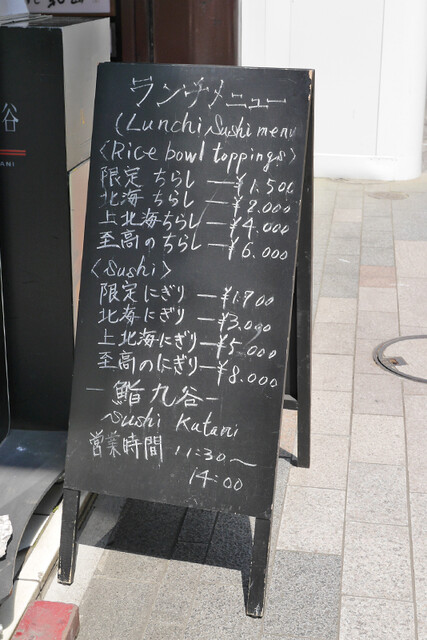 谷
ANI
ランチメニュー
(Lunchi Sushi menu
<Rice bowl toppings>
限定 ちらし ー ¥1.500
北海 ちらし ー ¥2.000
上北海ちらし ー ¥4.000
至高のちらし ー ¥6.000
<Sushi>
限定にぎり ー ¥1.700
北海にぎり ー ¥3.000
上北海にぎり ー ¥5.000
至高のにぎり ー ¥8.000
ー 鮨 九谷 ー
Sushi Kutani
営業時間 11:30〜
14:00